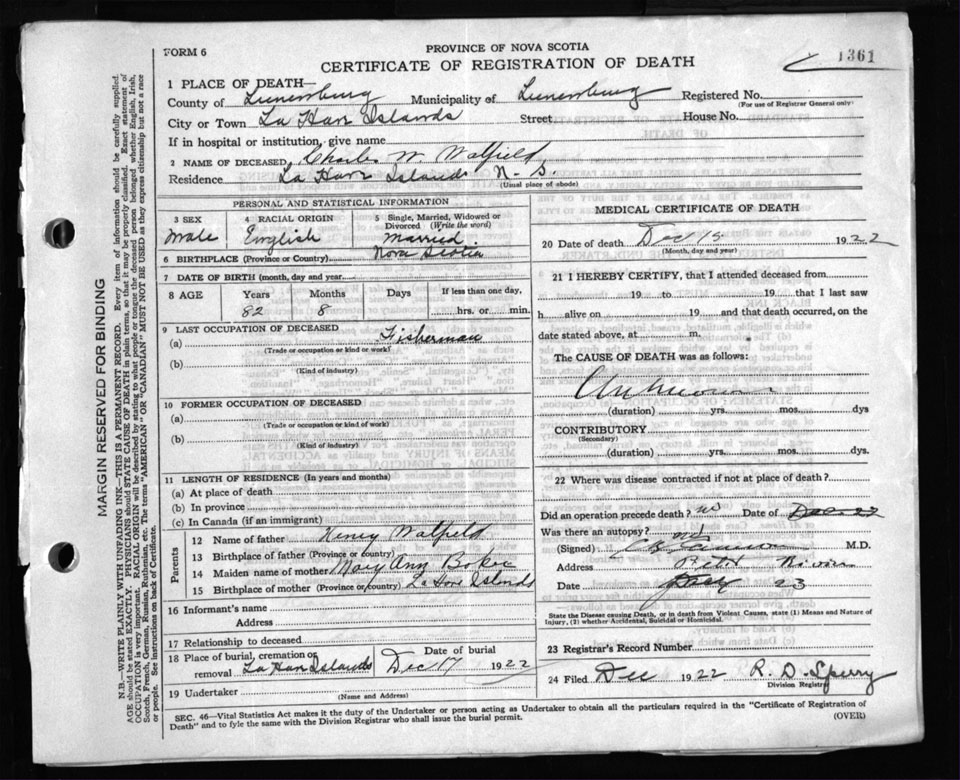 FORM 6
PROVINCE OF NOVA SCOTIA
CERTIFICATE OF REGISTRATION OF DEATH
1361
1 PLACE OF DEATH—
County of Lunenburg Municipality of Lunenburg Registered No.
(For use of Registrar General only)
City or Town La Have Islands Street House No.
If in hospital or institution, give name
2 NAME OF DECEASED Charles W. Walfield
Residence La Have Islands N. S.
(Usual place of abode)
PERSONAL AND STATISTICAL INFORMATION
3 SEX 4 RACIAL ORIGIN 5 Single, Married, Widowed or Divorced (Write the word)
Male English Married
6 BIRTHPLACE (Province or Country) Nova Scotia
7 DATE OF BIRTH (month, day and year)
8 AGE Years Months Days If less than one day,
82 8 hrs. or min.
9 LAST OCCUPATION OF DECEASED
(a) Fisherman
(Trade or occupation or kind or work)
(b)
(Kind of industry)
10 FORMER OCCUPATION OF DECEASED
(a)
(Trade or occupation or kind of work)
(b)
(Kind of industry)
11 LENGTH OF RESIDENCE (In years and months)
(a) At place of death
(b) In province
(c) In Canada (if an immigrant)
Parents
12 Name of father Henry Walfield
13 Birthplace of father (Province or country)
14 Maiden name of mother Mary Ann Baker
15 Birthplace of mother (Province or country) La Have Islands
16 Informant's name
Address
17 Relationship to deceased
18 Place of burial, cremation or removal La Have Islands Date of burial Dec 17 1922
19 Undertaker
(Name and Address)
MEDICAL CERTIFICATE OF DEATH
20 Date of death Dec 15 1922
(Month, day and year)
21 I HEREBY CERTIFY, that I attended deceased from
19 to 19 that I last saw
h alive on 19 and that death occurred, on
date stated above, at m.
The CAUSE OF DEATH was as follows:
(duration) yrs. mos. dys
CONTRIBUTORY
(Secondary)
(duration) yrs. mos. dys.
22 Where was disease contracted if not at place of death?
Did an operation precede death? no Date of Dec 22
Was there an autopsy? no
(Signed) M.D.
Address
Date 23
State the Disease causing Death, or in death from Violent Causes, state (1) Means and Nature of
Injury, (2) whether Accidental, Suicidal or Homicidal.
23 Registrar's Record Number
24 Filed Dec 1922 R. D. Sperry
Division Registry
SEC. 46—Vital Statistics Act makes it the duty of the Undertaker or person acting as Undertaker to obtain all the particulars required in the "Certificate of Registration of
Death" and to fyle the same with the Division Registrar who shall issue the burial permit.
(OVER)
MARGIN RESERVED FOR BINDING
N.B.—WRITE PLAINLY WITH UNFADING INK—THIS IS A PERMANENT RECORD. Every item of information should be carefully supplied.
AGE should be stated EXACTLY. PHYSICIANS should STATE CAUSE OF DEATH in plain terms, so that it may be properly classified. Exact statement of
OCCUPATION is very important. RACIAL ORIGIN will be described by stating to what people or tongue the deceased person belonged whether English, Irish,
Scotch, French, German, Russian, Ruthenian, etc. The terms "AMERICAN" OR "CANADIAN" MUST NOT BE USED as they express citizenship but not a race
or people. See instructions on back of Certificate.